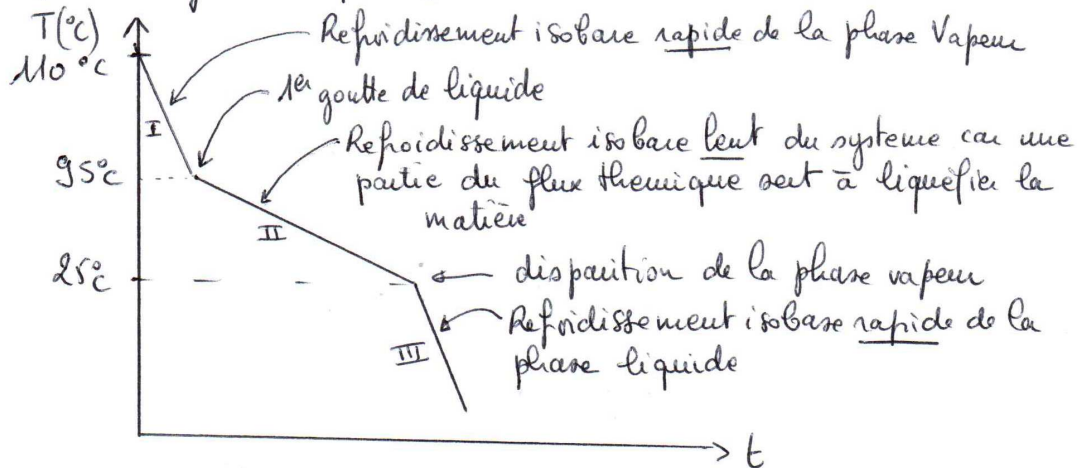 T(°C)
110 °C
Refroidissement isobare rapide de la phase Vapeur
1er goutte de liquide
I
Refroidissement isobare lent du systeme car une
partie du flux thermique sert à liquéfier la
matière
95°C
II
25°C
disparition de la phase vapeur
Refroidissement isobare rapide de la
phase liquide
III
t